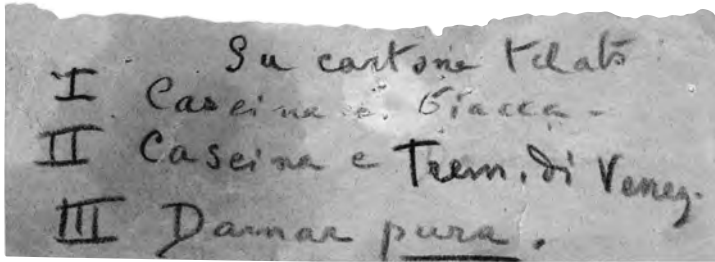 Su cartone telato
I Caseina e Biacca -
II Caseina e Trem. di Venez.
III Damar pura.